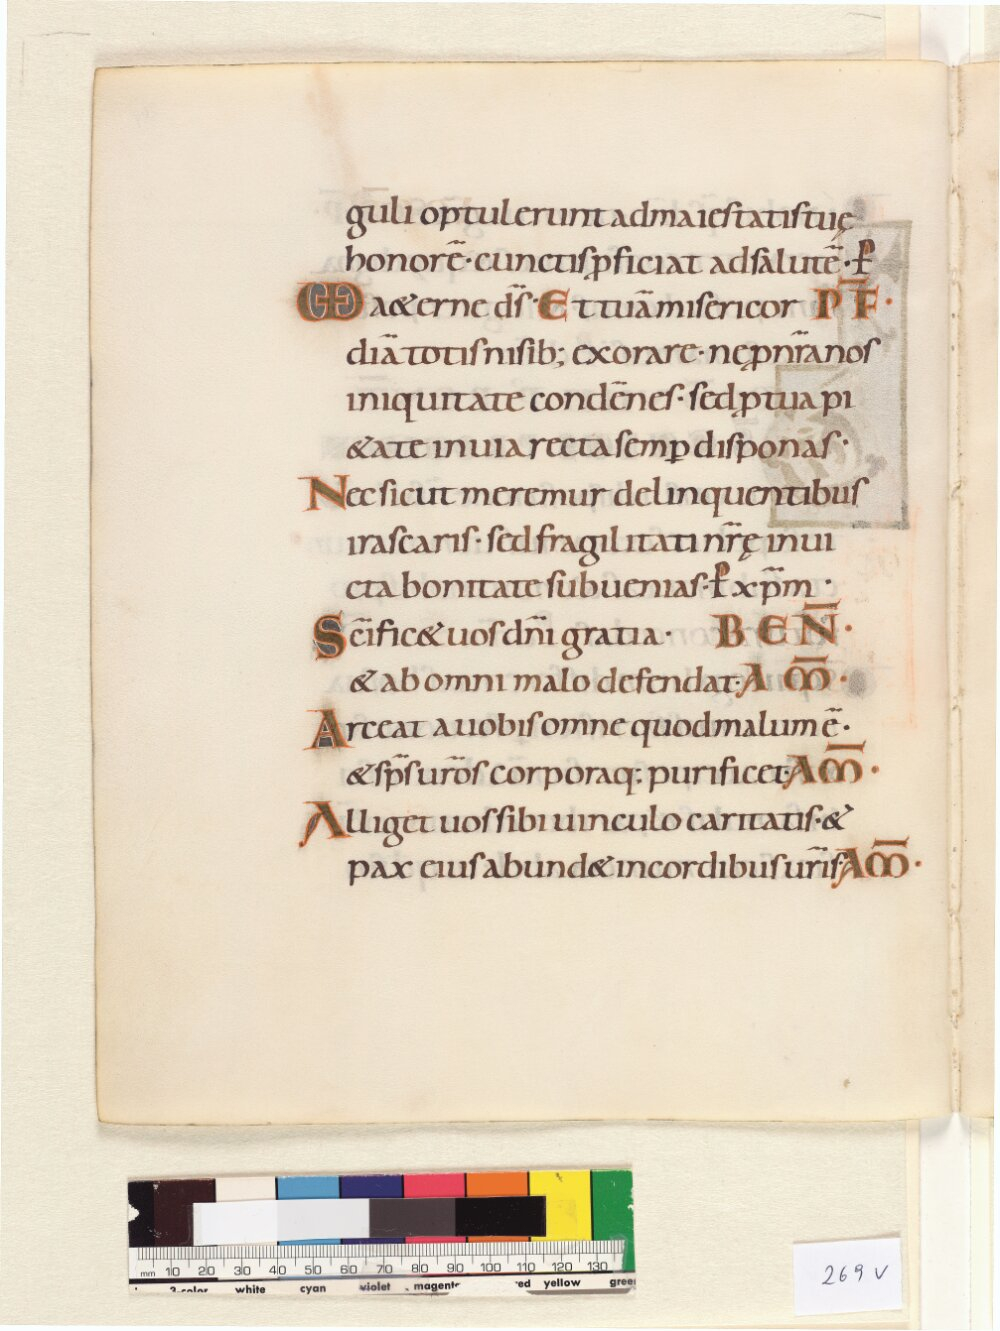 guli optulerunt ad maiestatis tuę
honorē· cunctis ꝓficiat ad salutē· ꝑ
UD aeterne ds̄· Et tuā misericor P̄F̄·
diā totis nisib; exorare· ne ꝓ nr̄a nos
iniquitate condēnes· sed ꝓ tua pi
&ate in uia recta semꝑ disponas·
Nec sicut meremur delinquentibus
irascaris· sed fragilitati nr̄ę inui
cta bonitate subuenias· ꝑ xp̄m·
Sc̄ific& uos dn̄i gratia· BEN̄·
& ab omni malo defendat· Am̄·
Arceat a uobis omne quod malum ē·
& sp̄s ur̄os corporaq; purificet· Am̄·
Alliget uos sibi uinculo caritatis· &
pax eius abund& in cordibus ur̄is· Am̄·
269 v
mm 10 20 30 40 50 60 70 80 90 100 110 120 130
3-color white cyan violet magenta red yellow green